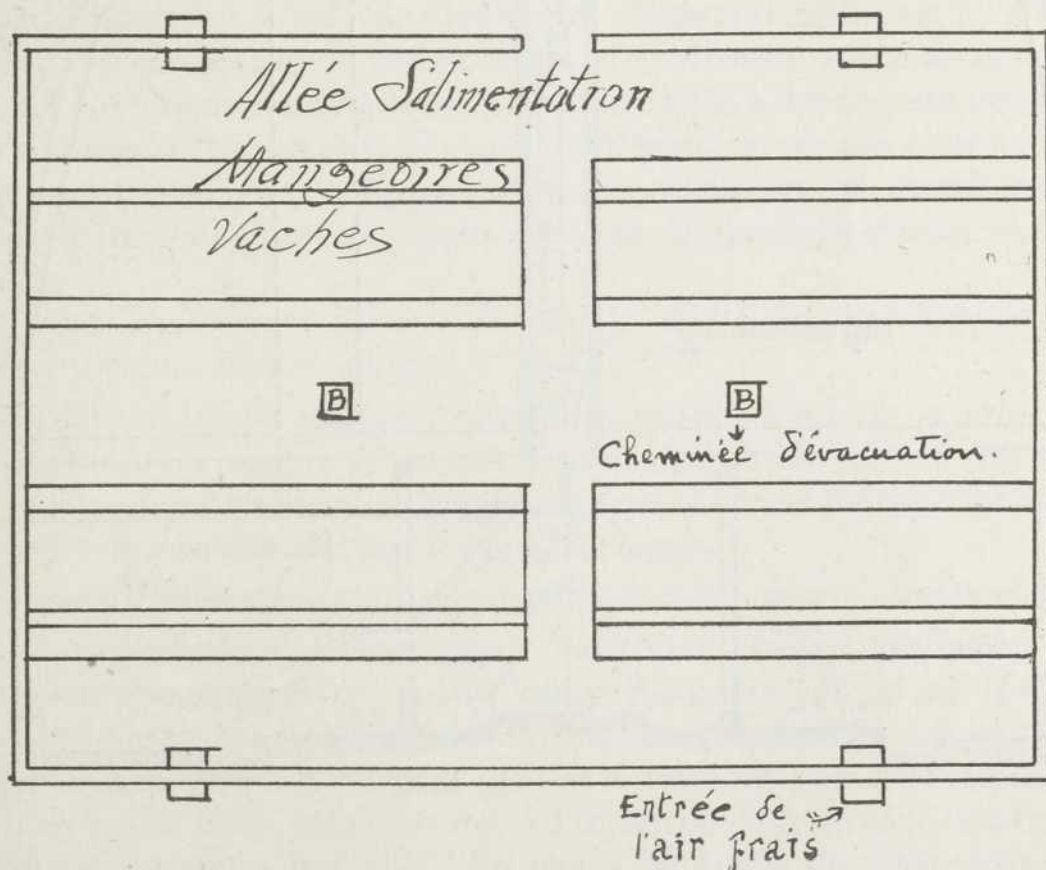 Allée d'alimentation
Mangeoires
Vaches
B
B
Cheminée d'évacuation.
Entrée de
l'air frais